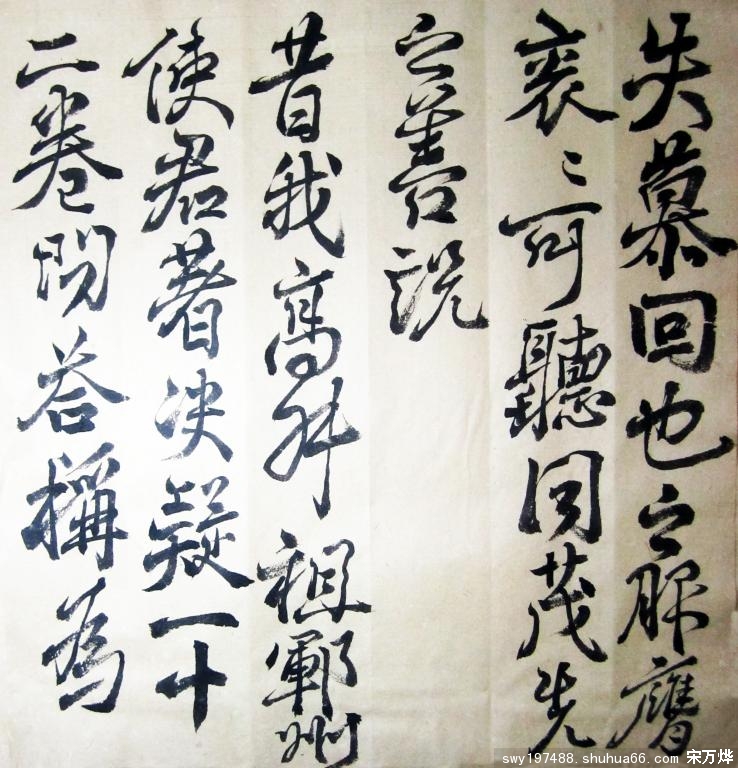 失慕回也之服膺
衮〻可聽同茂先
之善説
昔我髙叔祖鄆州
使君著决疑一十
二卷問荅稱為
swy197488.shuhua66.com 宋万烨